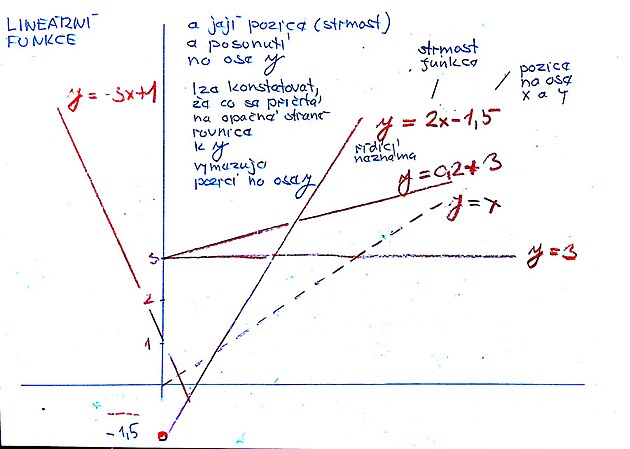 LINEÁRNÍ
FUNKCE
a její pozice (strmost)
a posonutí
no ose y
lze konstatovat,
že co se přičítá
na opačné straně
rovnice
k y
vymezuje
pozici no ose y
strmost
funkce
pozice
na ose
x a y
y = -3x+1
y = 2x-1,5
řídící
neznámá
y = 0,2 + 3
y = x
y = 3
3
2
1
-1,5